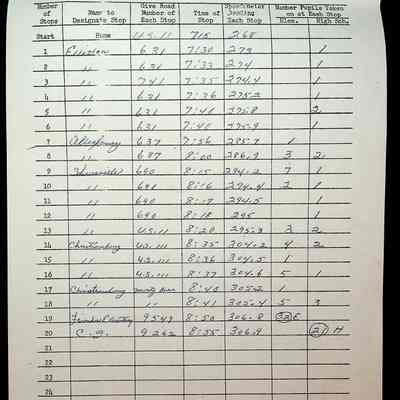 Number of Stops | Name to Designate Stop | Give Road Number of Each Stop | Time of Stop | Speedometer Reading Each Stop | Number Pupils Taken on at Each Stop Elem. | High Sch.
Start Home U.S. 11 7:15 268
1 Elliston 631 7:30 273 1
2 " 631 7:33 274 1
3 " 741 7:35 274.4 1
4 " 631 7:36 275.2 1
5 " 631 7:40 275.8 2
6 " 631 7:40 275.9 1
7 637 7:56 285.7 1
8 " 637 8:00 286.7 3 2
9 Shawsville 690 8:15 294.2 7 1
10 " 690 8:16 294.4 2 1
11 " 690 8:17 294.5 1
12 " 690 8:18 295 1
13 " U.S. 11 8:20 295.3 3 2
14 Christiansburg U.S. 111 8:35 304.2 4 2
15 " U.S. 111 8:36 304.5 1
16 " U.S. 111 8:37 304.6 5 1
17 Christiansburg 8:40 305.2 1
18 " " 8:41 305.4 5 3
19 9549 8:50 306.8 32 E
20 C. I. 9262 8:55 306.9 21 H
21
22
23
24